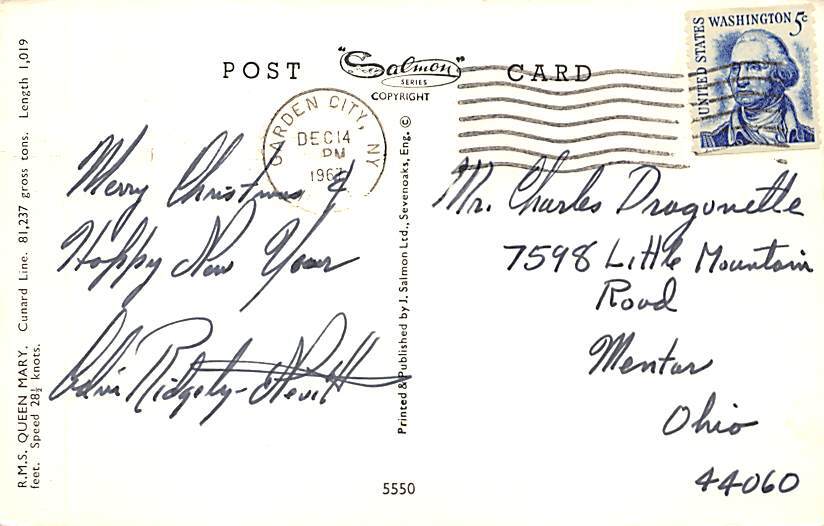 POST "Salmon" CARD
SERIES
COPYRIGHT
UNITED STATES
WASHINGTON 5c
GARDEN CITY, NY
DEC 14
PM
1967
Merry Christmas &
Happy New Year
Ridgely-Nevitt
Mr. Charles Dragonette
7598 Little Mountain
Road
Mentor
Ohio
44060
R.M.S. QUEEN MARY. Cunard Line. 81,237 gross tons. Length 1,019
feet. Speed 28½ knots.
Printed & Published by J. Salmon Ltd., Sevenoaks, Eng. ©
5550